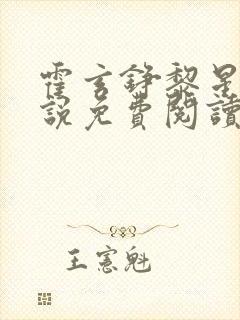 霍言錚黎星
說免費閱讀
王憲魁